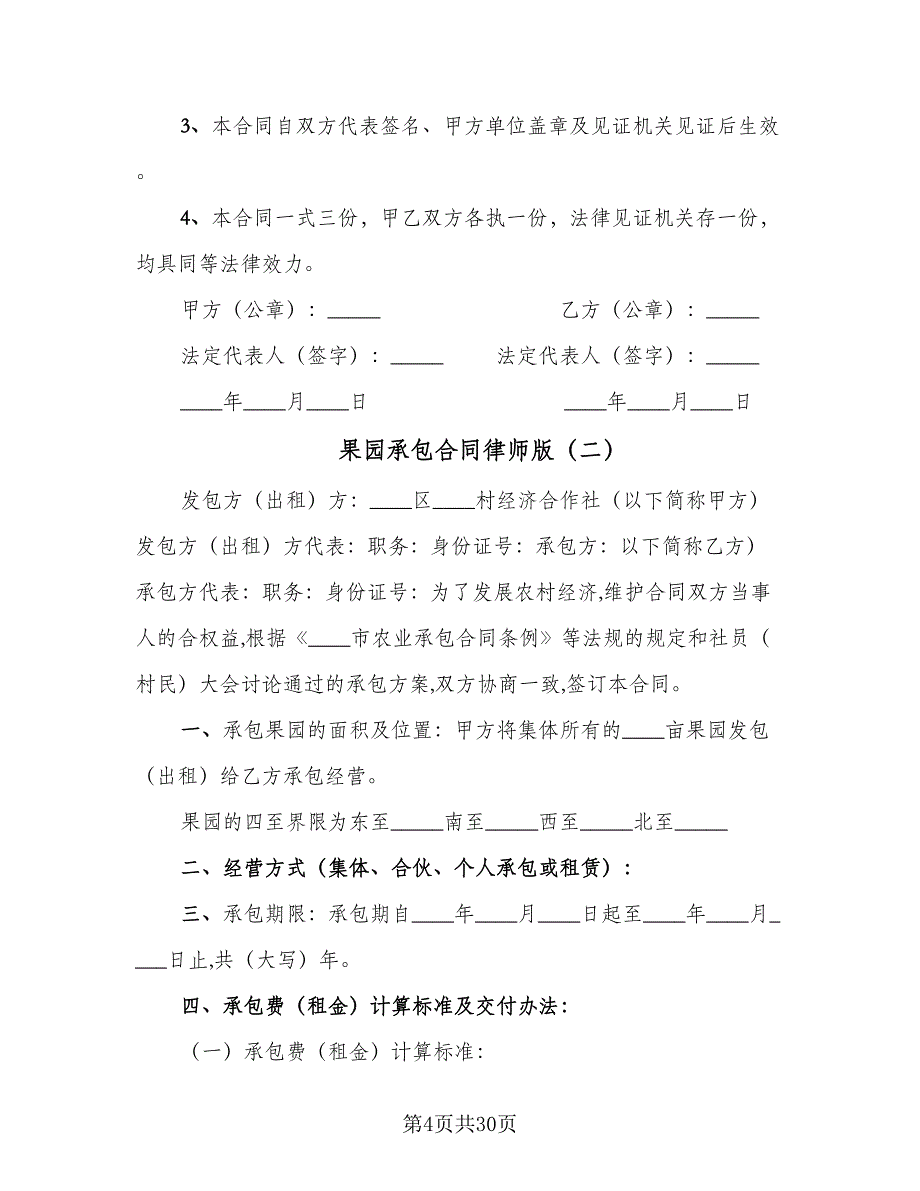 3、本合同自双方代表签名、甲方单位盖章及见证机关见证后生效
。
4、本合同一式三份，甲乙双方各执一份，法律见证机关存一份，
均具同等法律效力。
甲方（公章）：_____ 乙方（公章）：_____
法定代表人（签字）：_____ 法定代表人（签字）：_____
____年____月____日 ____年____月____日
果园承包合同律师版（二）
发包方（出租）方：____区____村经济合作社（以下简称甲方）
发包方（出租）方代表：职务：身份证号：承包方：以下简称乙方）
承包方代表：职务：身份证号：为了发展农村经济,维护合同双方当事
人的合权益,根据《____市农业承包合同条例》等法规的规定和社员（
村民）大会讨论通过的承包方案,双方协商一致,签订本合同。
一、承包果园的面积及位置：甲方将集体所有的____亩果园发包
（出租）给乙方承包经营。
果园的四至界限为东至_____南至_____西至_____北至_____
二、经营方式（集体、合伙、个人承包或租赁）：
三、承包期限：承包期自____年____月____日起至____年____月_
___日止,共（大写）年。
四、承包费（租金）计算标准及交付办法：
（一）承包费（租金）计算标准：
第4页共30页